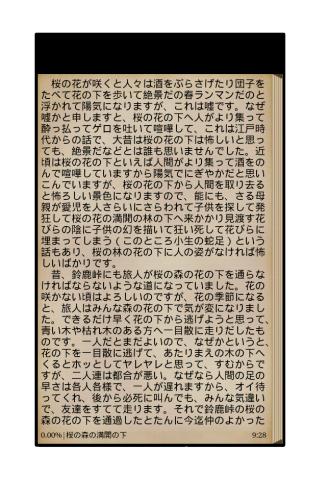 桜の花が咲くと人々は酒をぶらさげたり団子を
たべて花の下を歩いて絶景だの春ランマンだのと
浮かれて陽気になりますが、これは嘘です。なぜ
嘘かと申しますと、桜の花の下へ人がより集って
酔っ払ってゲロを吐いて喧嘩して、これは江戸時
代からの話で、大昔は桜の花の下は怖しいと思っ
ても、絶景だなどとは誰も思いませんでした。近
頃は桜の花の下といえば人間がより集って酒をの
んで喧嘩していますから陽気でにぎやかだと思い
こんでいますが、桜の花の下から人間を取り去る
と怖ろしい景色になりますので、能にも、さる母
親が愛児を人さらいにさらわれて子供を探して発
狂して桜の花の満開の林の下へ来かかり見渡す花
びらの陰に子供の幻を描いて狂い死して花びらに
埋まってしまう（このところ小生の蛇足）という
話もあり、桜の林の花の下に人の姿がなければ怖
しいばかりです。
昔、鈴鹿峠にも旅人が桜の森の花の下を通らな
ければならないような道になっていました。花の
咲かない頃はよろしいのですが、花の季節になる
と、旅人はみんな森の花の下で気が変になりまし
た。できるだけ早く花の下から逃げようと思って、
青い木や枯れ木のある方へ一目散に走りだしたも
のです。一人だとまだよいので、なぜかというと、
花の下を一目散に逃げて、あたりまえの木の下へ
くるとホッとしてヤレヤレと思って、すむからで
すが、二人連は都合が悪い。なぜなら人間の足の
早さは各人各様で、一人が遅れますから、オイ待
ってくれ、後から必死に叫んでも、みんな気違い
で、友達をすてて走ります。それで鈴鹿峠の桜の
森の花の下を通過したとたんに今迄仲のよかった
0.00% | 桜の森の満開の下 9:28